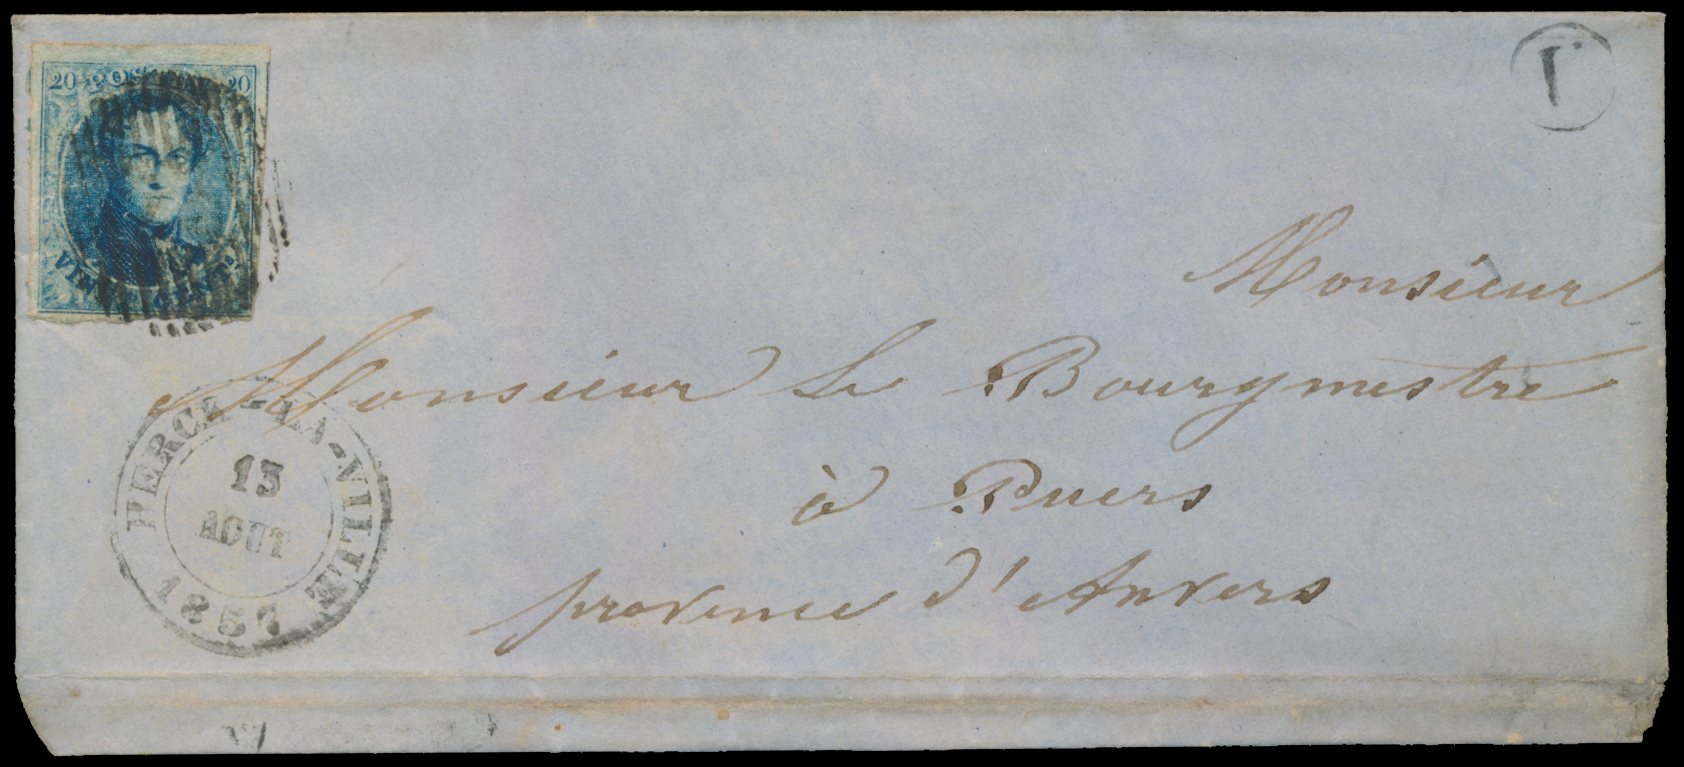 20 20
VINGT CENTS
I
Monsieur
Monsieur le Bourgmestre
à Puers
province d'Anvers
HERCK-LA-VILLE
13
AOUT
1857